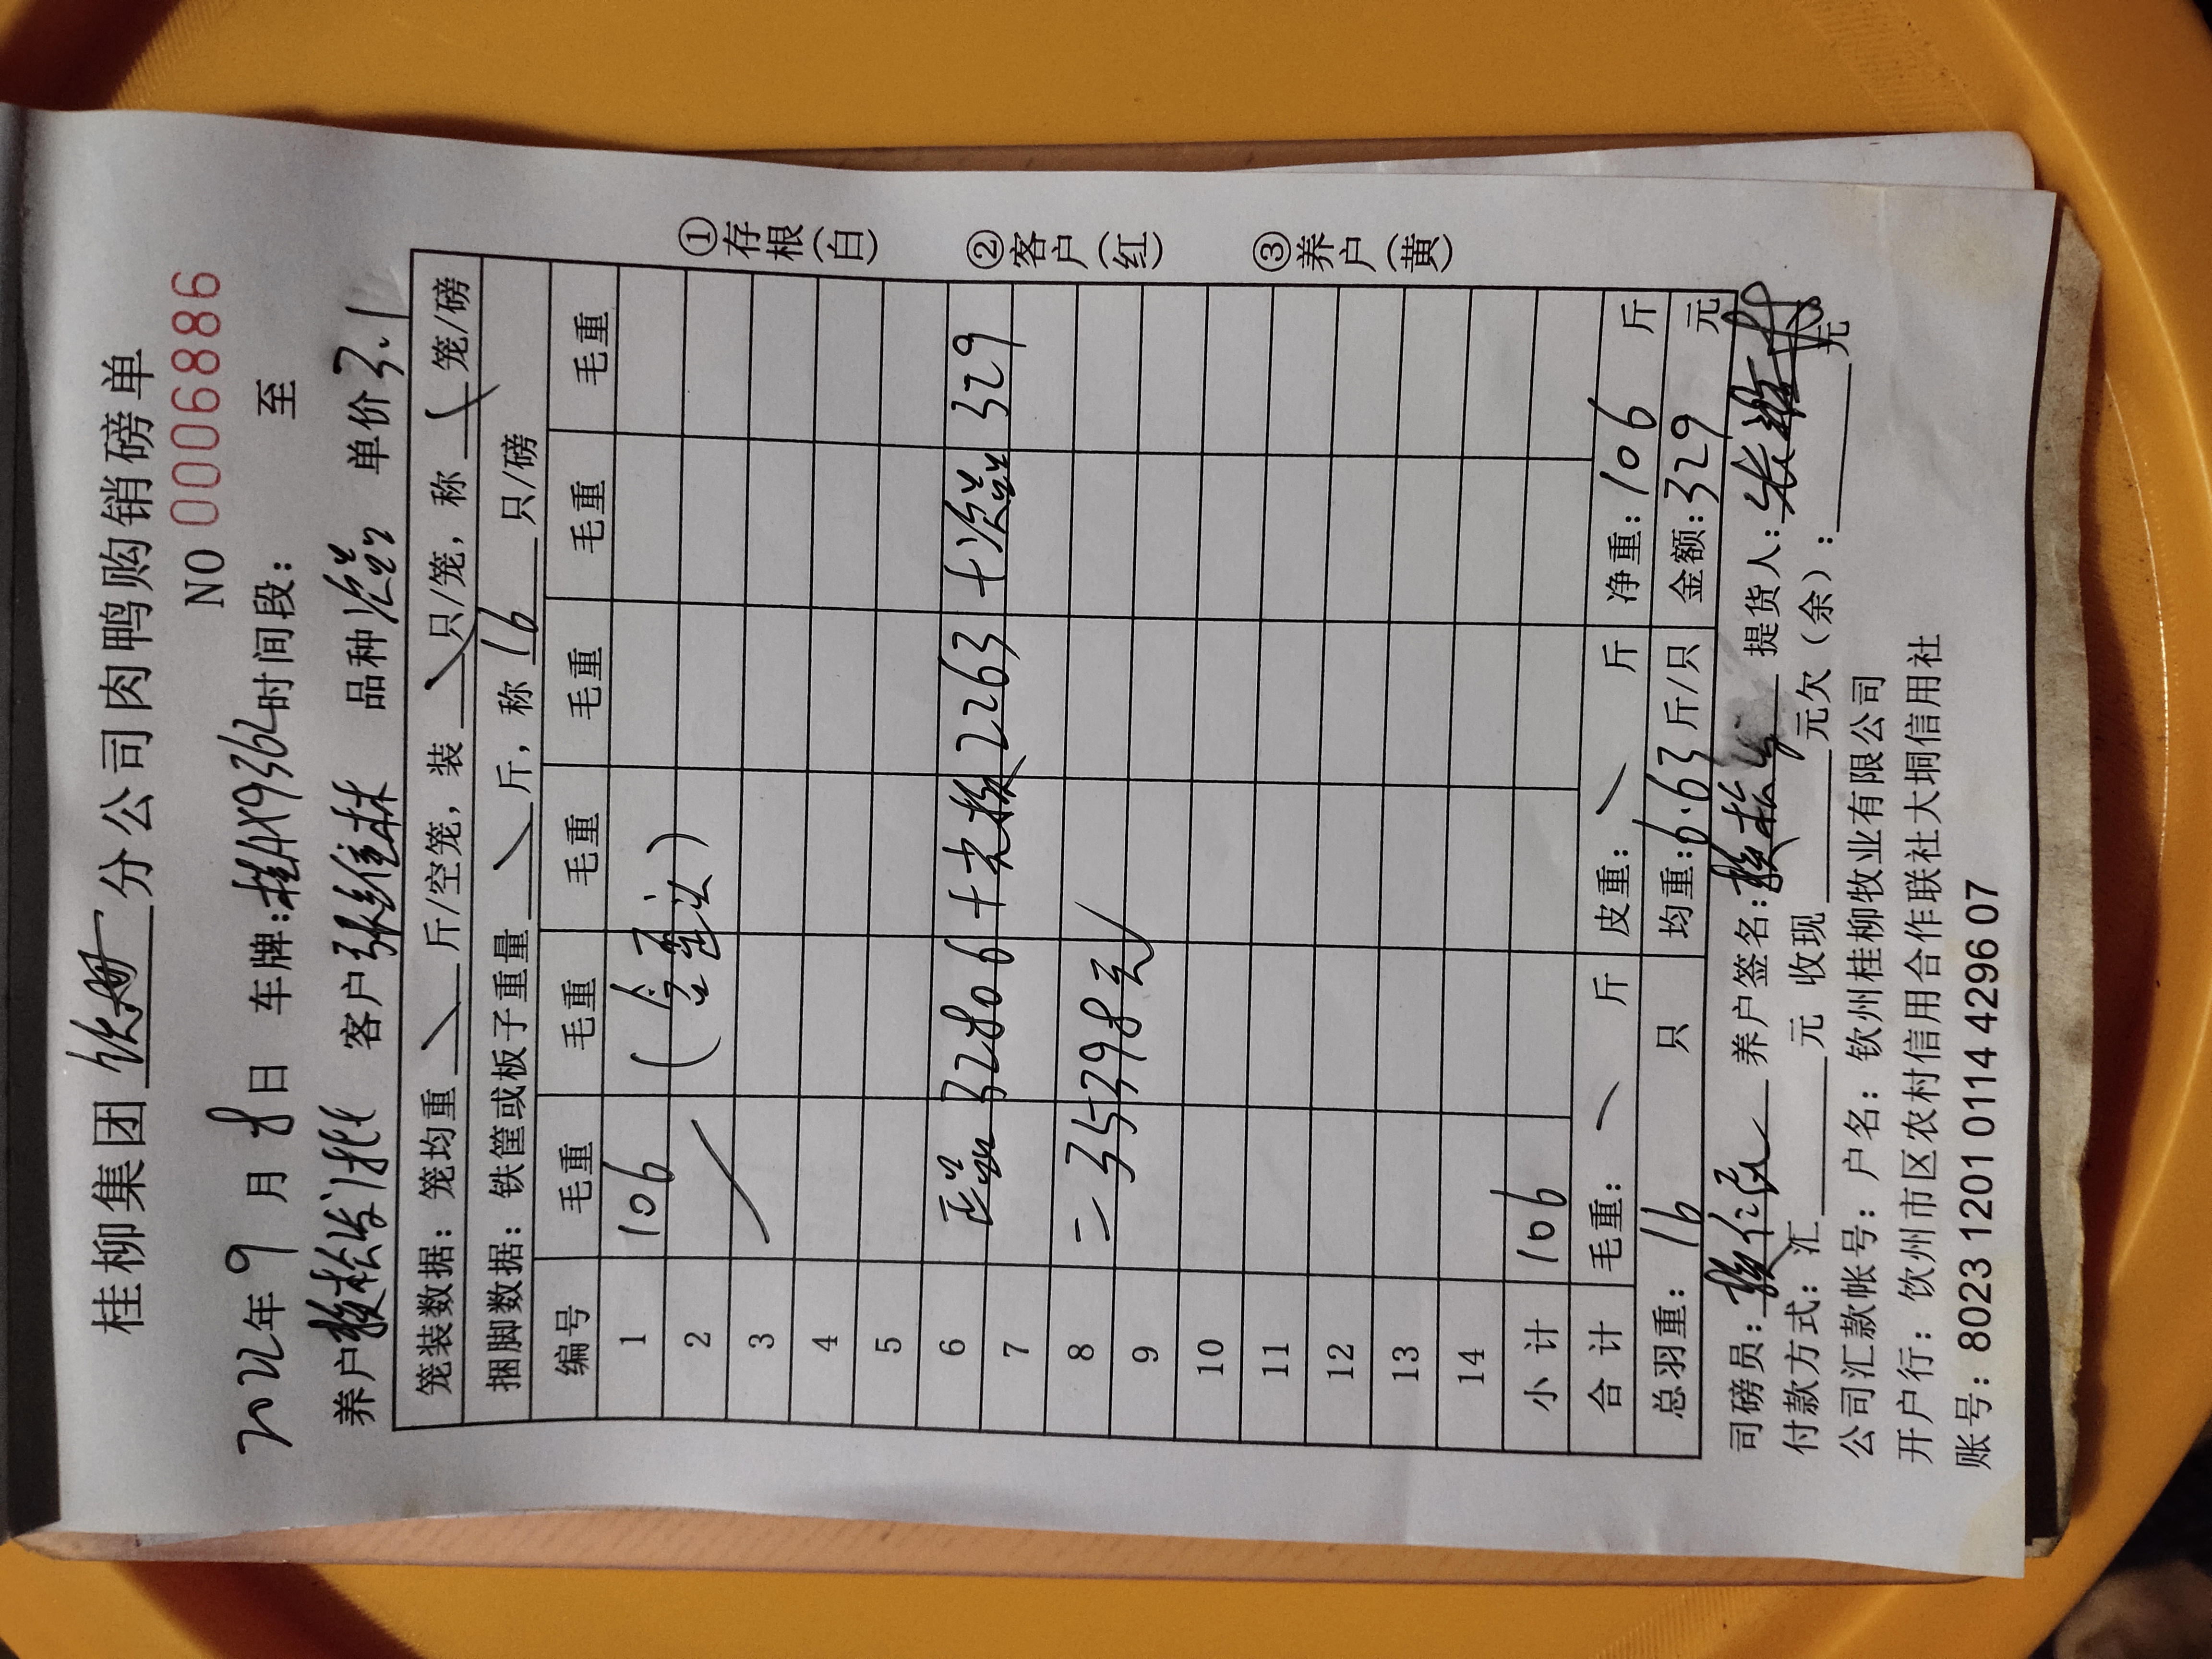 桂柳集团 钦州 分公司肉鸭购销磅单
NO 0006886
2022年9月8日 车牌:桂AX9362时间段: 至
养户 客户张维林 品种 单价3.1
笼装数据: 笼均重 斤/空笼, 装 只/笼, 称 笼/磅
捆脚数据: 铁筐或板子重量 斤, 称 16 只/磅
编号 毛重 毛重 毛重 毛重 毛重 毛重
1 106
2
3
4
5
6 32806+ 2263+ 329
7
8 =35398元
9
10
11
12
13
14
小计 106
合计 毛重: 斤 皮重: 斤 净重:106 斤
总羽重: 16 只 均重:6.63斤/只 金额:329 元
司磅员: 养户签名: 提货人:
付款方式: 汇 元 收现 元欠(余): 元
公司汇款帐号: 户名: 钦州桂柳牧业有限公司
开户行: 钦州市区农村信用合作联社大垌信用社
账号: 8023 1201 0114 4296 07
①存根(白)
②客户(红)
③养户(黄)